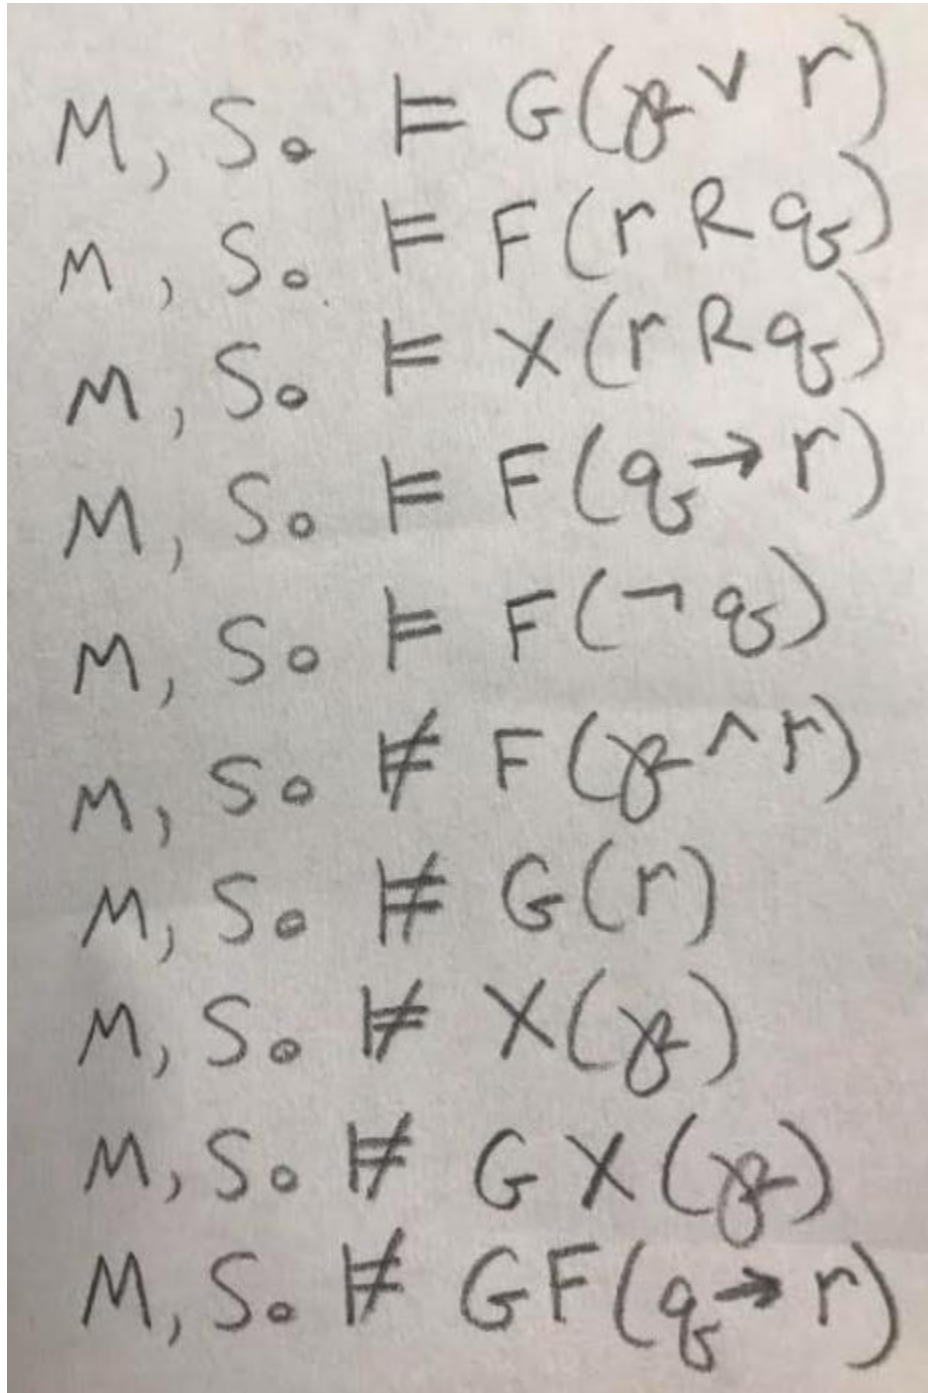 M, S₀ ⊨ G(p ∨ r)
M, S₀ ⊨ F(r R q)
M, S₀ ⊨ X(r R q)
M, S₀ ⊨ F(q → r)
M, S₀ ⊨ F(¬ q)
M, S₀ ⊭ F(p ∧ r)
M, S₀ ⊭ G(r)
M, S₀ ⊭ X(p)
M, S₀ ⊭ G X(p)
M, S₀ ⊭ G F(q → r)